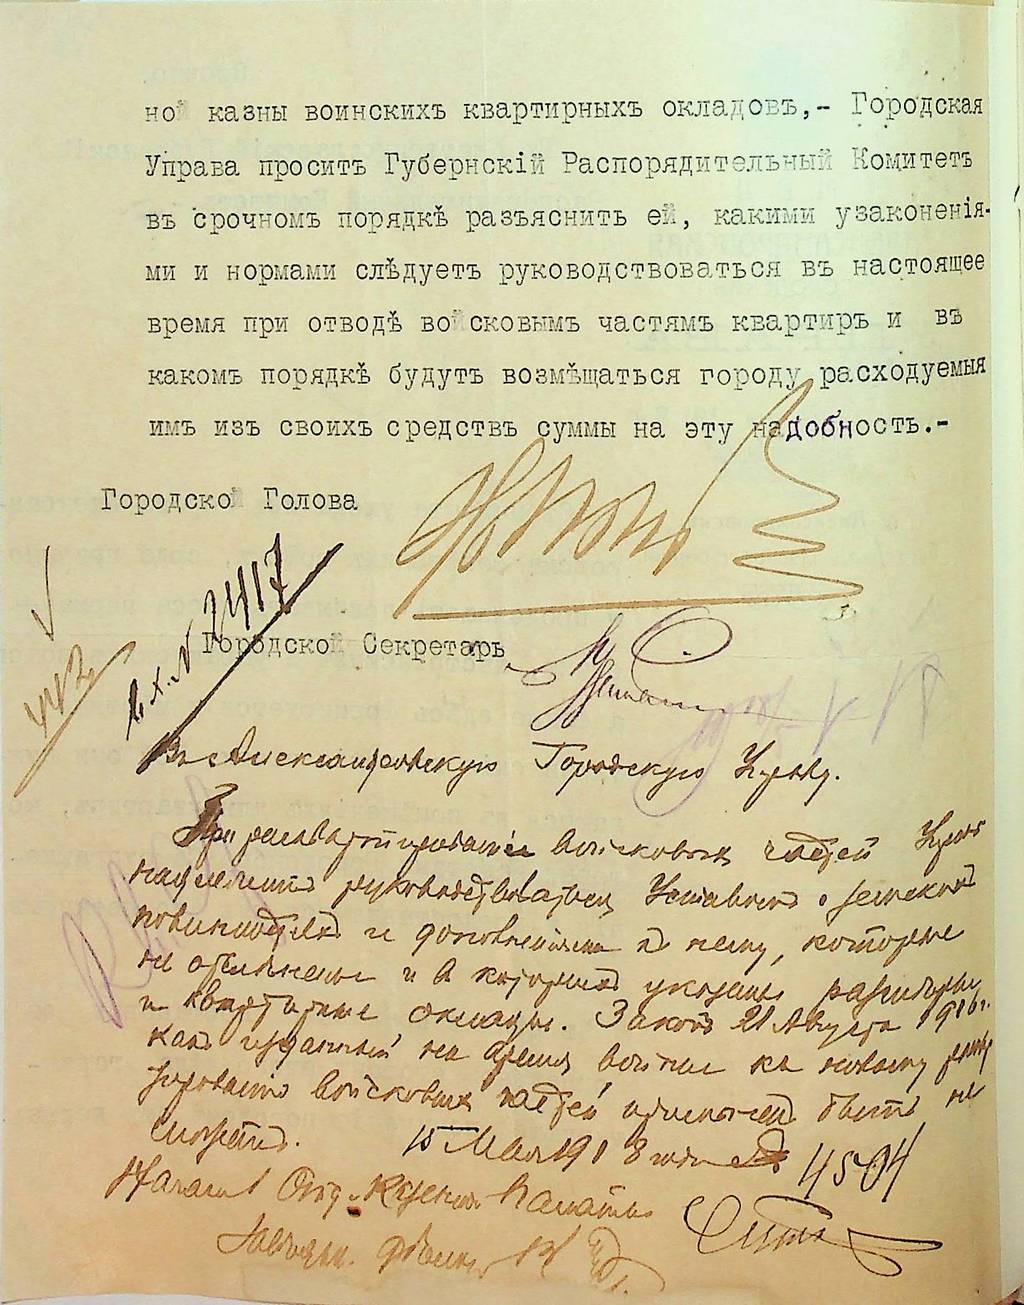 ной казны воинскихъ квартирныхъ окладовъ,- Городская
Управа проситъ Губернскій Распорядительный Комитетъ
въ срочномъ порядкѣ разъяснить ей, какими узаконенія-
ми и нормами слѣдуетъ руководствоваться въ настоящее
время при отводѣ войсковымъ частямъ квартиръ и въ
какомъ порядкѣ будутъ возмѣщаться городу расходуемыя
имъ изъ своихъ средствъ суммы на эту надобность.-
Городской Голова
Вх. № 2417
Городской Секретарь
442
Въ Александровскую Городскую Управу.
При расквартированіи войсковыхъ частей Управѣ
надлежитъ руководствоваться Уставомъ о земскихъ
повинностяхъ и дополненіями къ нему, которые
не отмѣнены и въ которыхъ указаны
и квартирные оклады. Законъ 21 Августа 1916 г.
какъ изданный на время войны къ новому
войсковыхъ частей примѣненъ быть не
можетъ. 15 Мая 1918 года № 4504
Начал Отд. Казенной Палаты